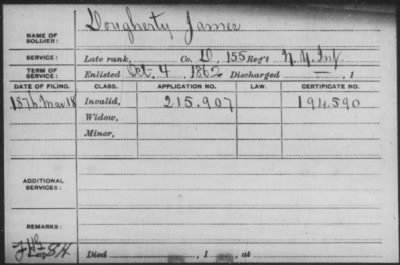 Dougherty James
NAME OF SOLDIER:
SERVICE: Late rank, Co. D, 155 Reg't N.Y. Inf.
TERM OF SERVICE: Enlisted Oct. 4, 1862 Discharged —, 1
DATE OF FILING. CLASS. APPLICATION NO. LAW. CERTIFICATE NO.
1876 Mar 18 Invalid, 215.907 194.590
Widow,
Minor,
ADDITIONAL SERVICES:
REMARKS:
Died , 1 , at